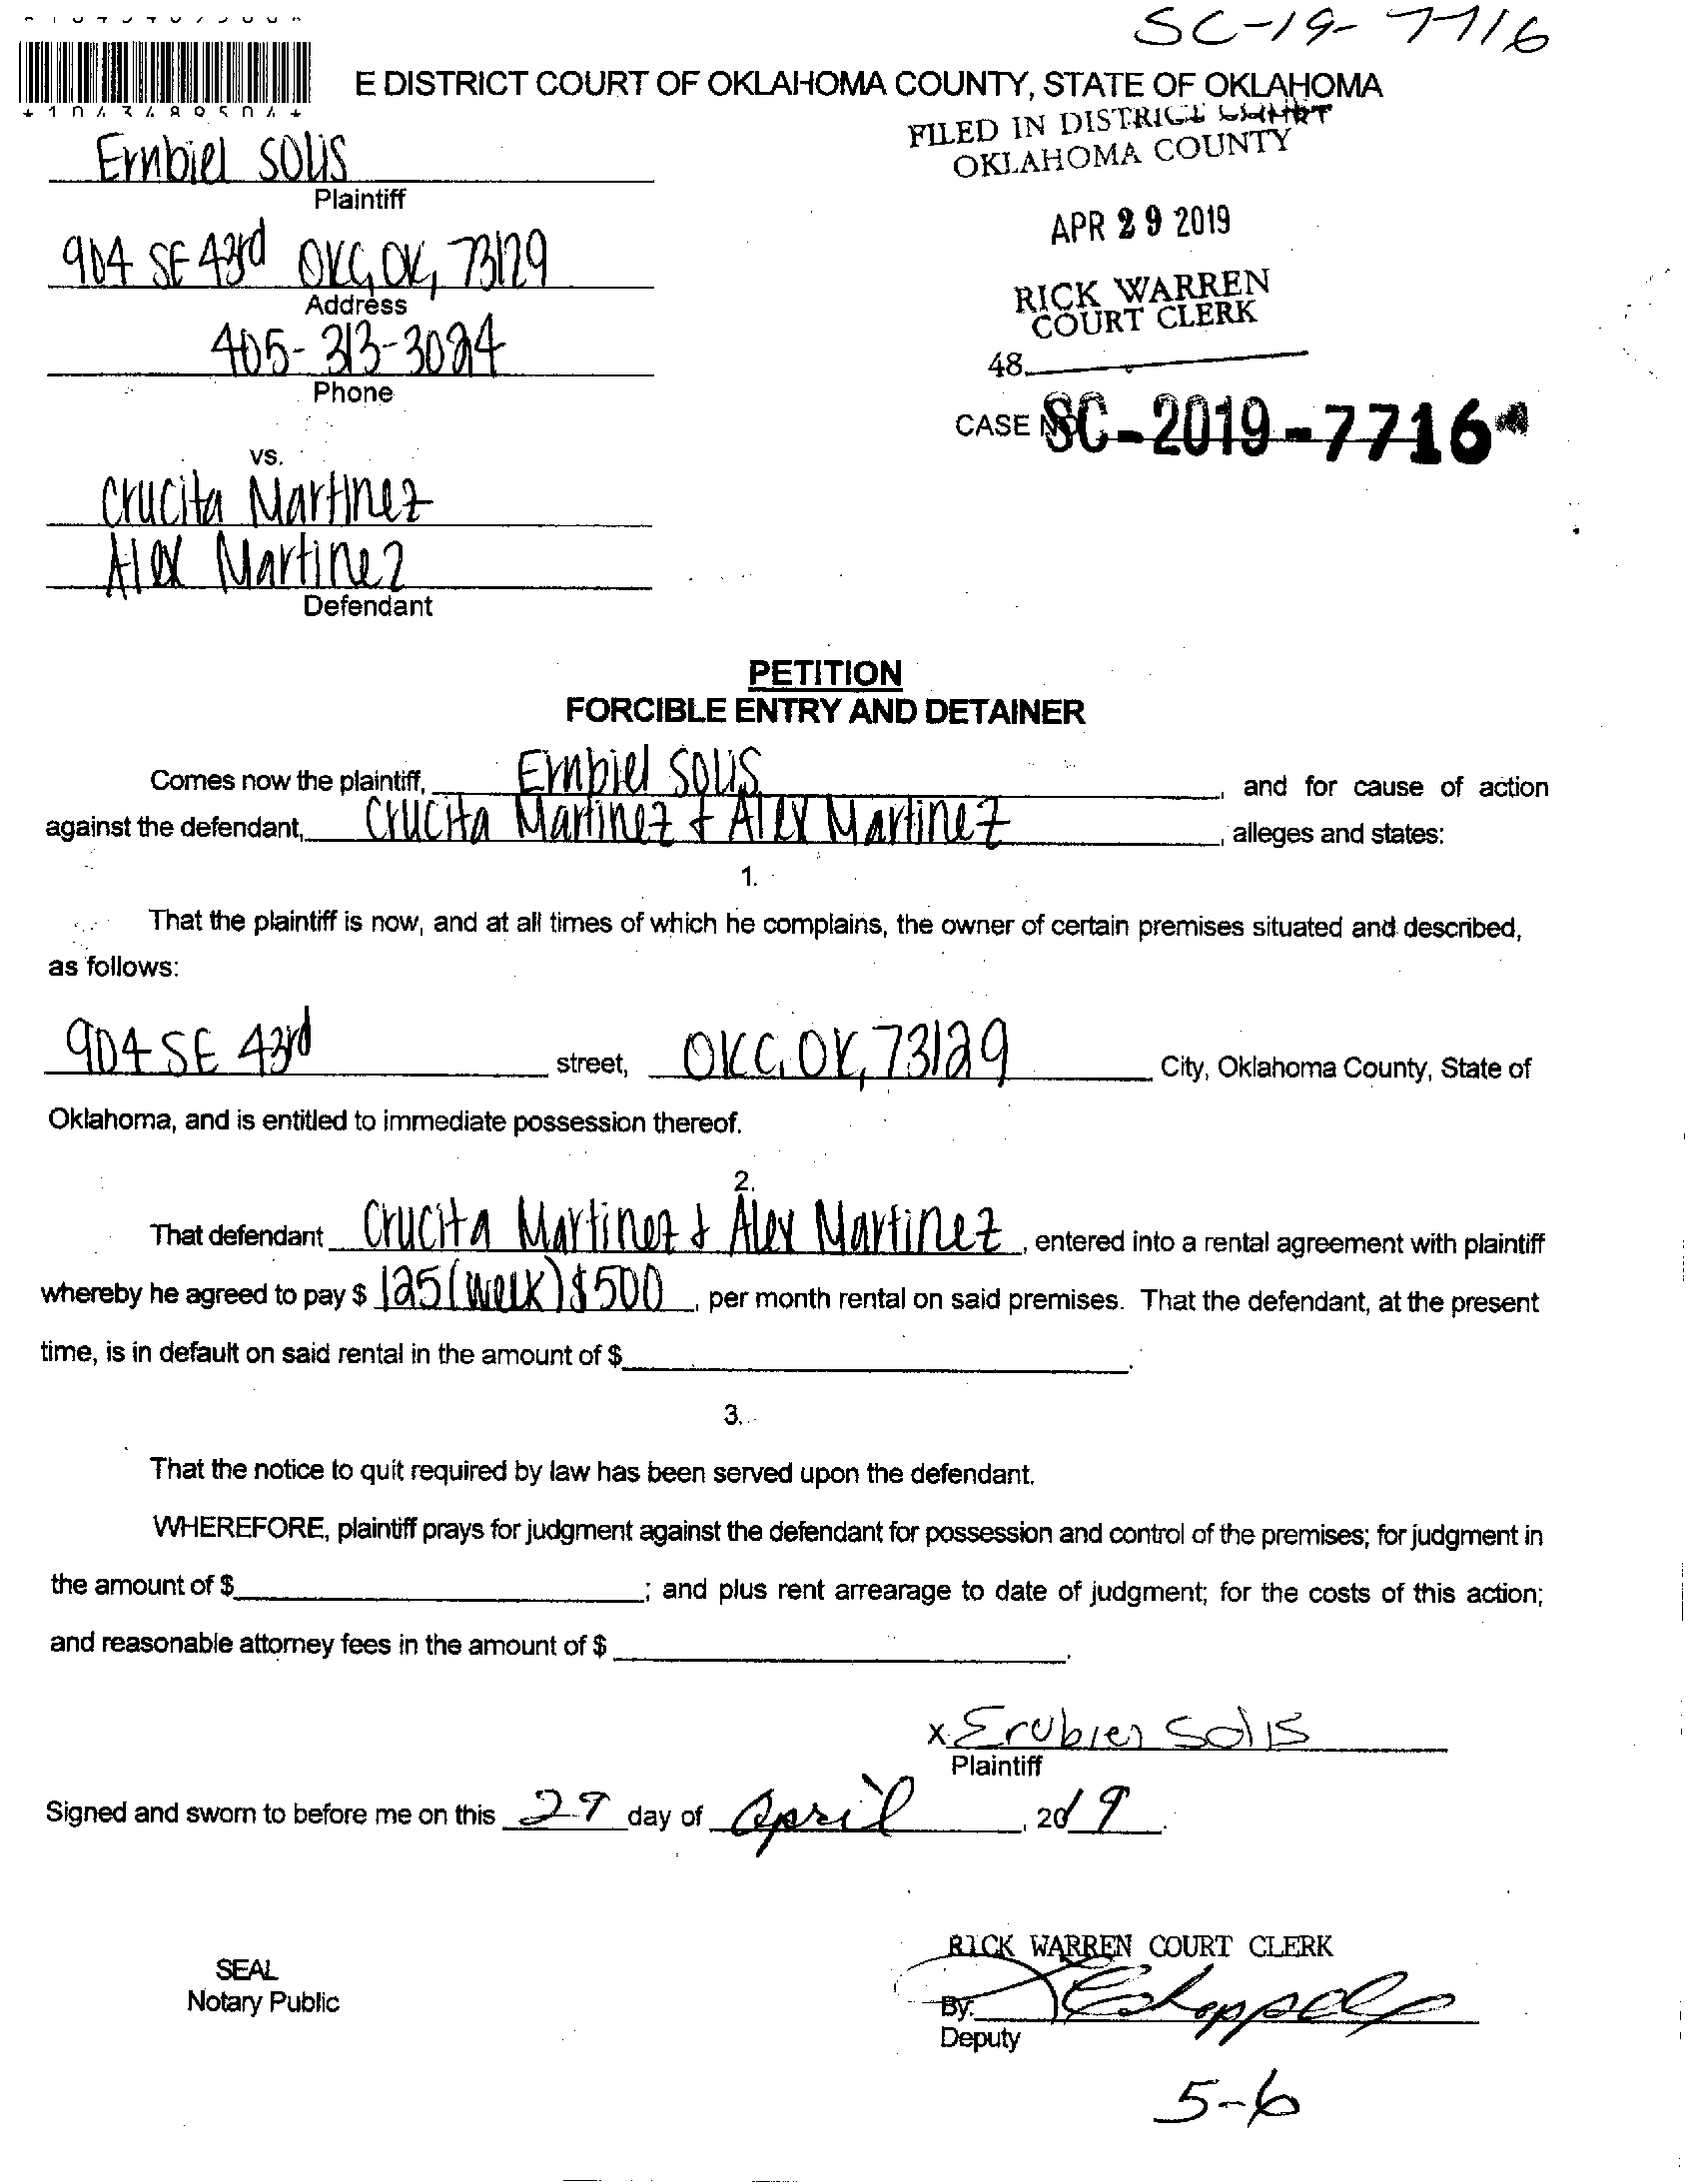 SC-19-7716
E DISTRICT COURT OF OKLAHOMA COUNTY, STATE OF OKLAHOMA
FILED IN DISTRICT COURT
OKLAHOMA COUNTY
*1043489504*
Erubiel Solis
Plaintiff
APR 29 2019
904 SE 43rd OKC, OK, 73129
Address
RICK WARREN
COURT CLERK
405-313-3024
Phone
48
CASE NO. SC-2019-7716
vs.
Crucita Martinez
Alex Martinez
Defendant
PETITION
FORCIBLE ENTRY AND DETAINER
Comes now the plaintiff, Erubiel Solis, and for cause of action
against the defendant, Crucita Martinez + Alex Martinez, alleges and states:
1.
That the plaintiff is now, and at all times of which he complains, the owner of certain premises situated and described,
as follows:
904 SE 43rd street, OKC, OK, 73129 City, Oklahoma County, State of
Oklahoma, and is entitled to immediate possession thereof.
2.
That defendant Crucita Martinez + Alex Martinez, entered into a rental agreement with plaintiff
whereby he agreed to pay $ 125 (week) $500, per month rental on said premises. That the defendant, at the present
time, is in default on said rental in the amount of $.
3.
That the notice to quit required by law has been served upon the defendant.
WHEREFORE, plaintiff prays for judgment against the defendant for possession and control of the premises; for judgment in
the amount of $; and plus rent arrearage to date of judgment; for the costs of this action;
and reasonable attorney fees in the amount of $.
x Erubiel Solis
Plaintiff
Signed and sworn to before me on this 29 day of April, 2019.
RICK WARREN COURT CLERK
SEAL
Notary Public
By:
Deputy
5-6